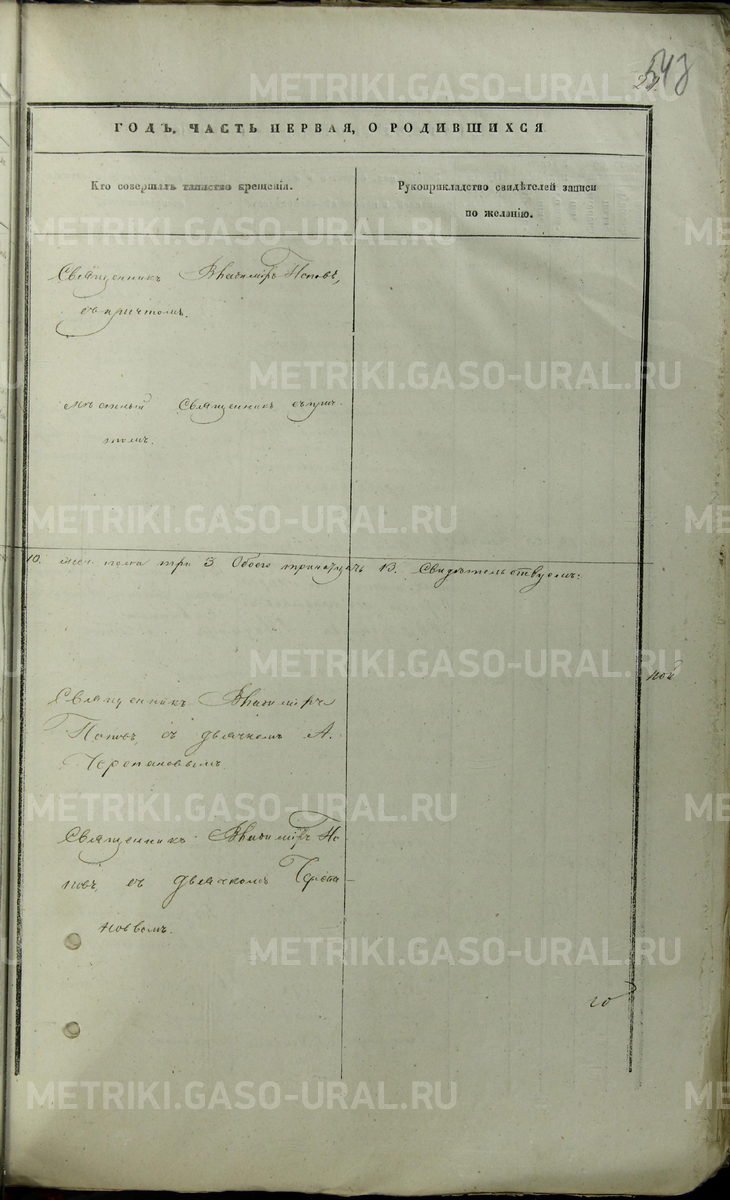 543
ГОДЪ, ЧАСТЬ ПЕРВАЯ, О РОДИВШИХСЯ
Кто совершалъ таинство крещенія.
Рукоприкладство свидѣтелей записи
по желанію.
Священникъ Владиміръ Поповъ,
съ причтомъ.
Мѣстный Священникъ съ прич-
томъ.
10. жен. пола три 3 Обоего тринадцать 13. Свидѣтельствуемъ:
Священникъ Владиміръ
Поповъ, съ дьячкомъ А.
Черепановымъ.
Священникъ Владиміръ По-
повъ, съ дьячкомъ Черепа-
новымъ.
METRIKI.GASO-URAL.RU